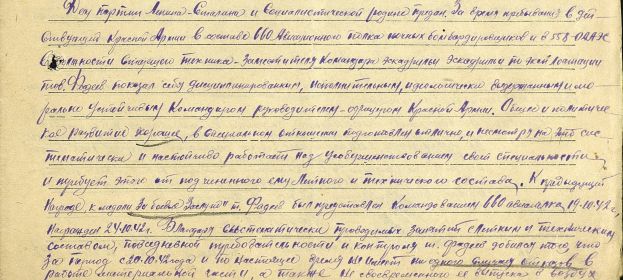 Делу партии Ленина-Сталина и Социалистической родине предан. За время пребывания в дей-
ствующей Красной Армии в составе 660 Авиационного полка ночных бомбардировщиков и в 558
в должности старшего техника-заместителя Командира эскадрильи по эксплоатации
тов. Фадеев показал себя дисциплинированным, исполнительным, идеологически выдержанным и мо-
рально устойчивым Командиром руководителем-офицером Красной Армии. Общее и политичес-
кое развитие хорошее, в специальном отношении подготовлен отлично, и несмотря на это сис-
тематически и настойчиво работает над усовершенствованием своей специальности
и требует этого от подчиненного ему Летного и технического состава. К предыдущей
награде, к медали "За боевые Заслуги" т. Фадеев был представлен Командованием 660 авиаполка 19.10.42 г.
Награжден 24.10.42 г. Благодаря систематически проводимых занятий с Летным и техническим
составом, повседневной требовательности и контроля т. Фадеев добился того, что
за период с 20.10.42 года и по настоящее время не имеет ни одного случая отказов в
работе материальной части, а также не своевременного ее выпуска в воздух